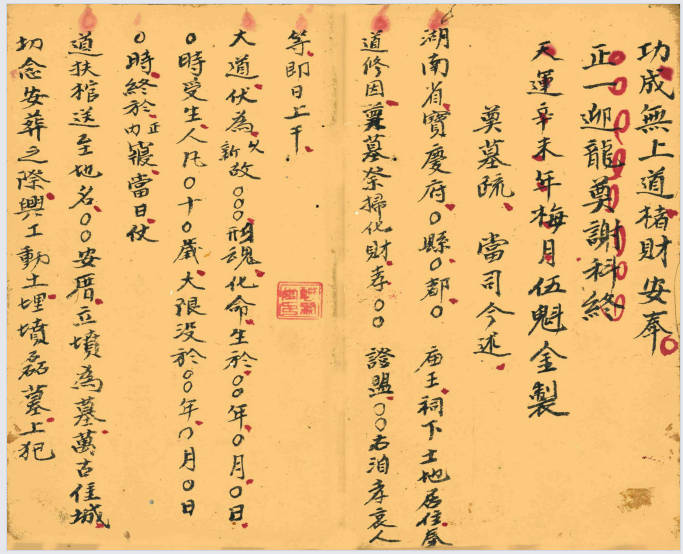 功成無上道楮財安奉
正一迎龍奠謝科終
天運辛未年梅月伍魁金製
奠墓疏 當司今述
湖南省寶慶府〇縣〇都〇 庙王祠下土地居住奉
道修因奠墓祭掃化財孝〇〇 證盟〇〇右洎孝哀人
等即日上干
大道伏為新故〇〇〇形魂化命生於〇〇年〇月〇日
〇時受生人凡〇十〇歲大限没於〇〇年〇月〇日
〇時終於正寢當日仗
道扶棺送至地名〇〇安厝立墳為墓萬古佳城
切念安葬之際興工動土埋墳磊墓上犯